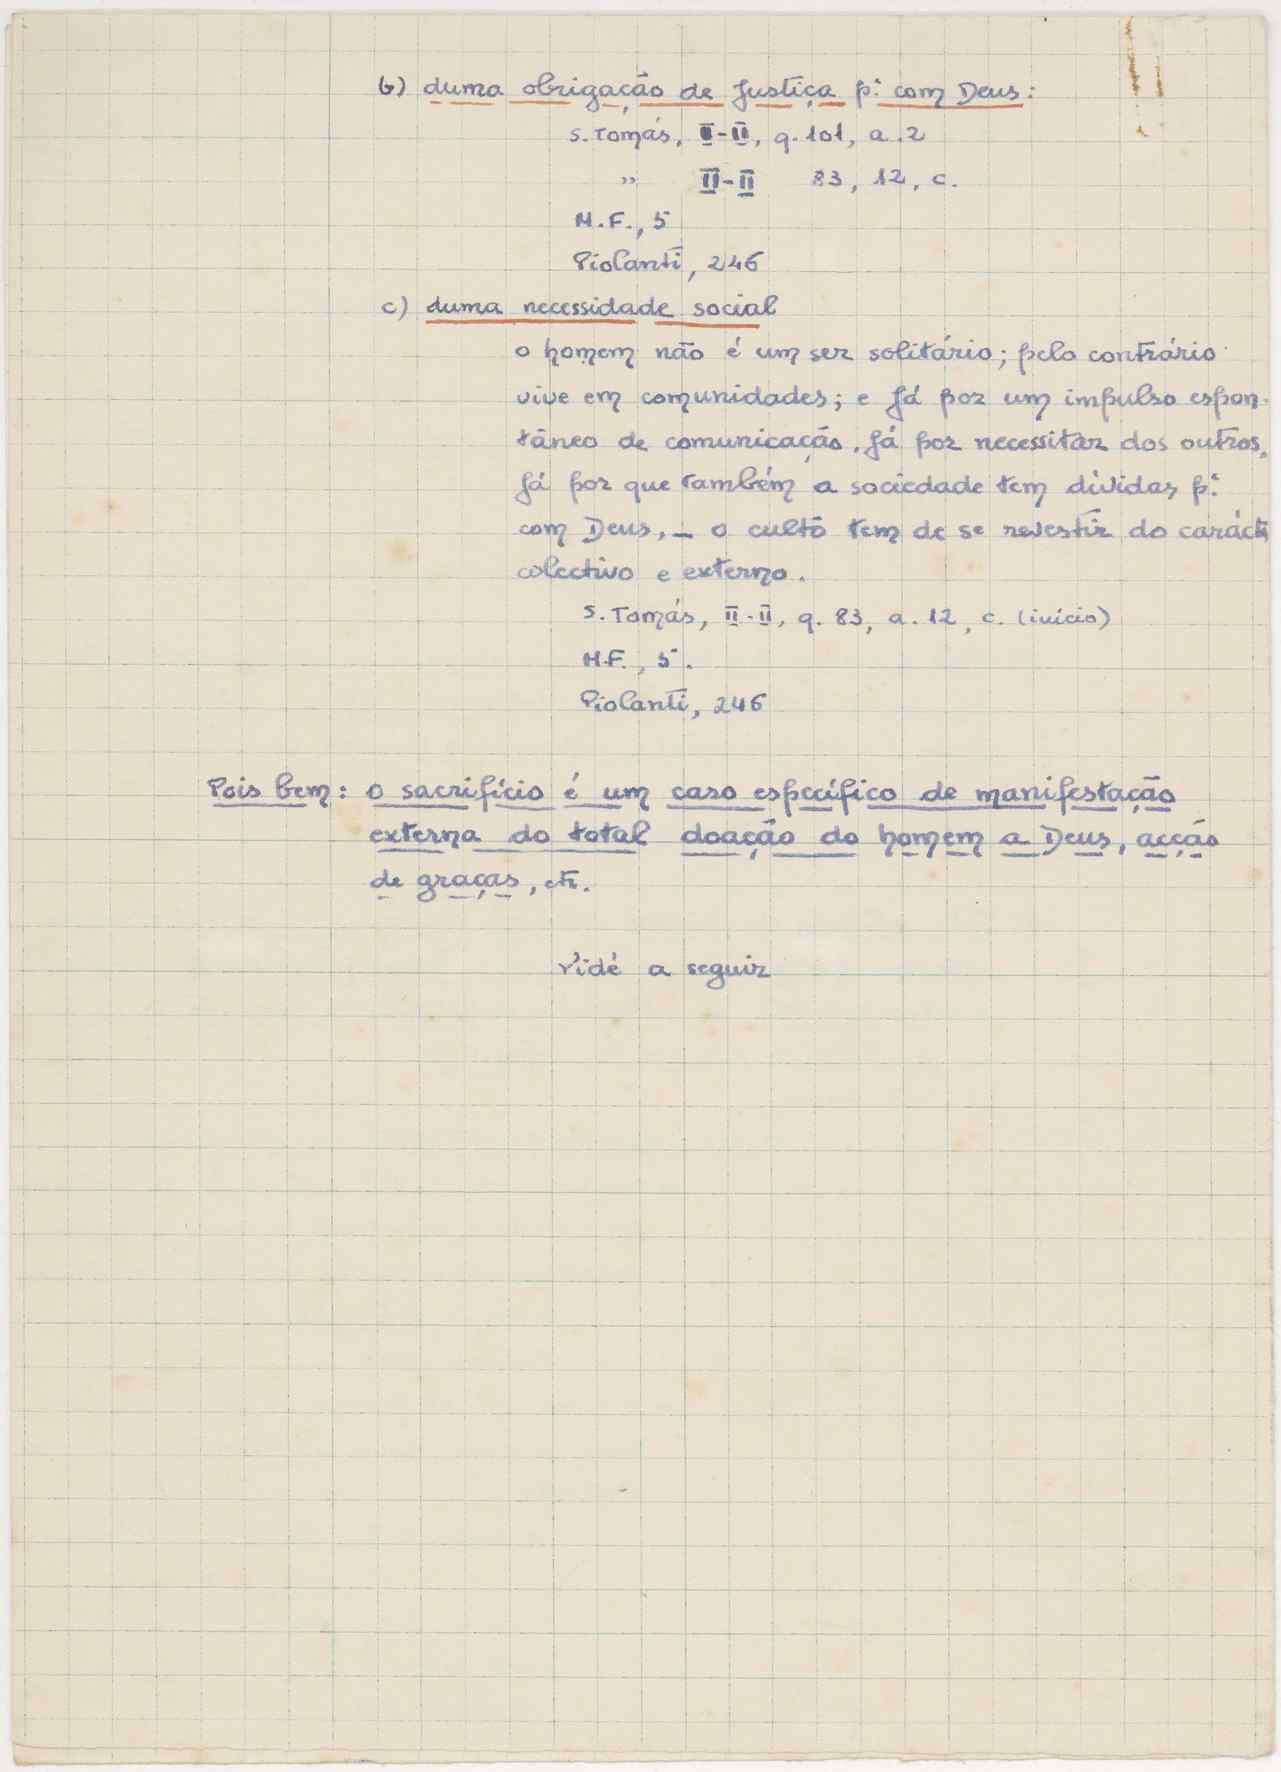 b) duma obrigação de justiça p.ª com Deus:
S. Tomás, II-II, q. 101, a. 2
" II-II 83, 12, c.
M.F., 5
Piolanti, 246
c) duma necessidade social
o homem não é um ser solitário; pelo contrário
vive em comunidades; e já por um impulso espon-
tâneo de comunicação, já por necessitar dos outros,
já por que também a sociedade tem dívidas p.ª
com Deus, — o culto tem de se revestir do carácter
colectivo e externo.
S. Tomás, II-II, q. 83, a. 12, c. (início)
M.F., 5.
Piolanti, 246
Pois bem: o sacrifício é um caso específico de manifestação
externa do total doação do homem a Deus, acção
de graças, etc.
Vidé a seguir